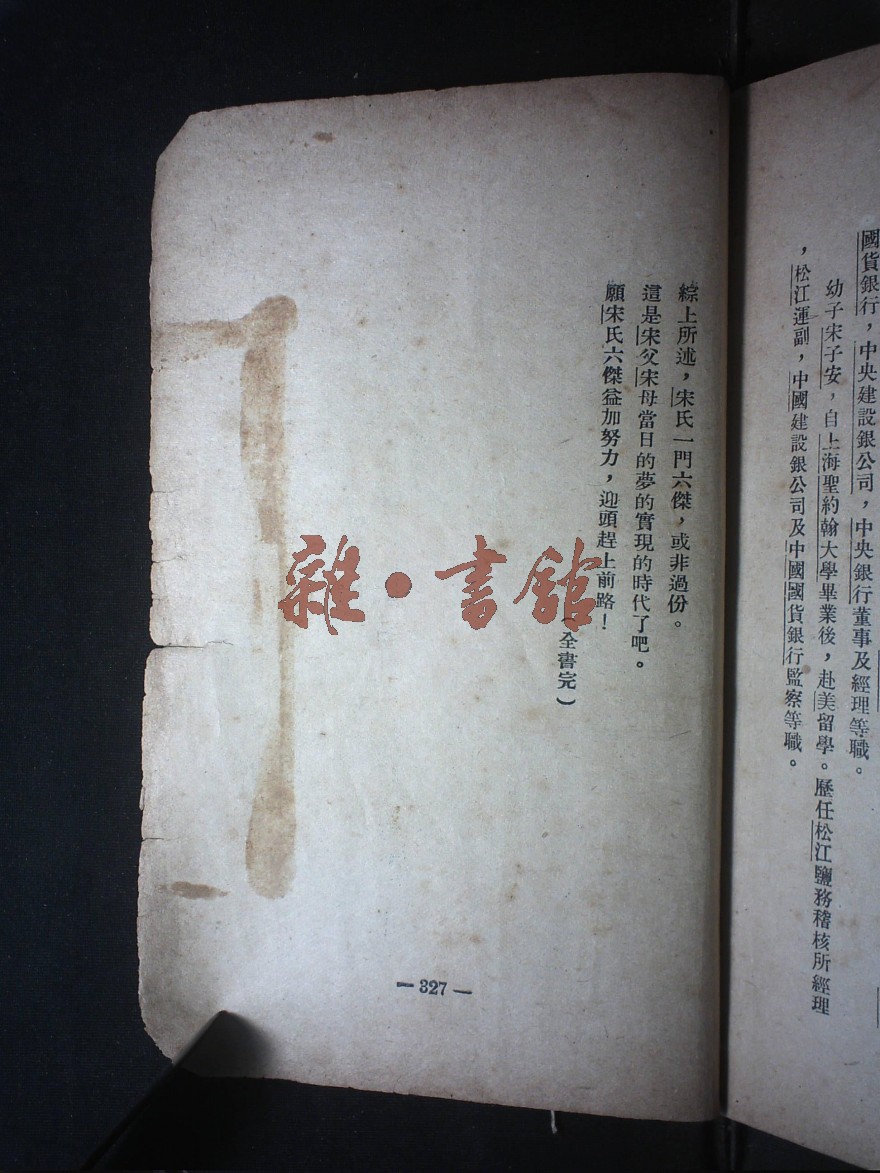 國貨銀行，中央建設銀公司，中央銀行董事及經理等職。
幼子宋子安，自上海聖約翰大學畢業後，赴美留學。歷任松江鹽務稽核所經理
，松江運副，中國建設銀公司及中國國貨銀行監察等職。
綜上所述，宋氏一門六傑，或非過份。
這是宋父宋母當日的夢的實現的時代了吧。
願宋氏六傑益加努力，迎頭趕上前路！
（全書完）
—327—
雜•書館